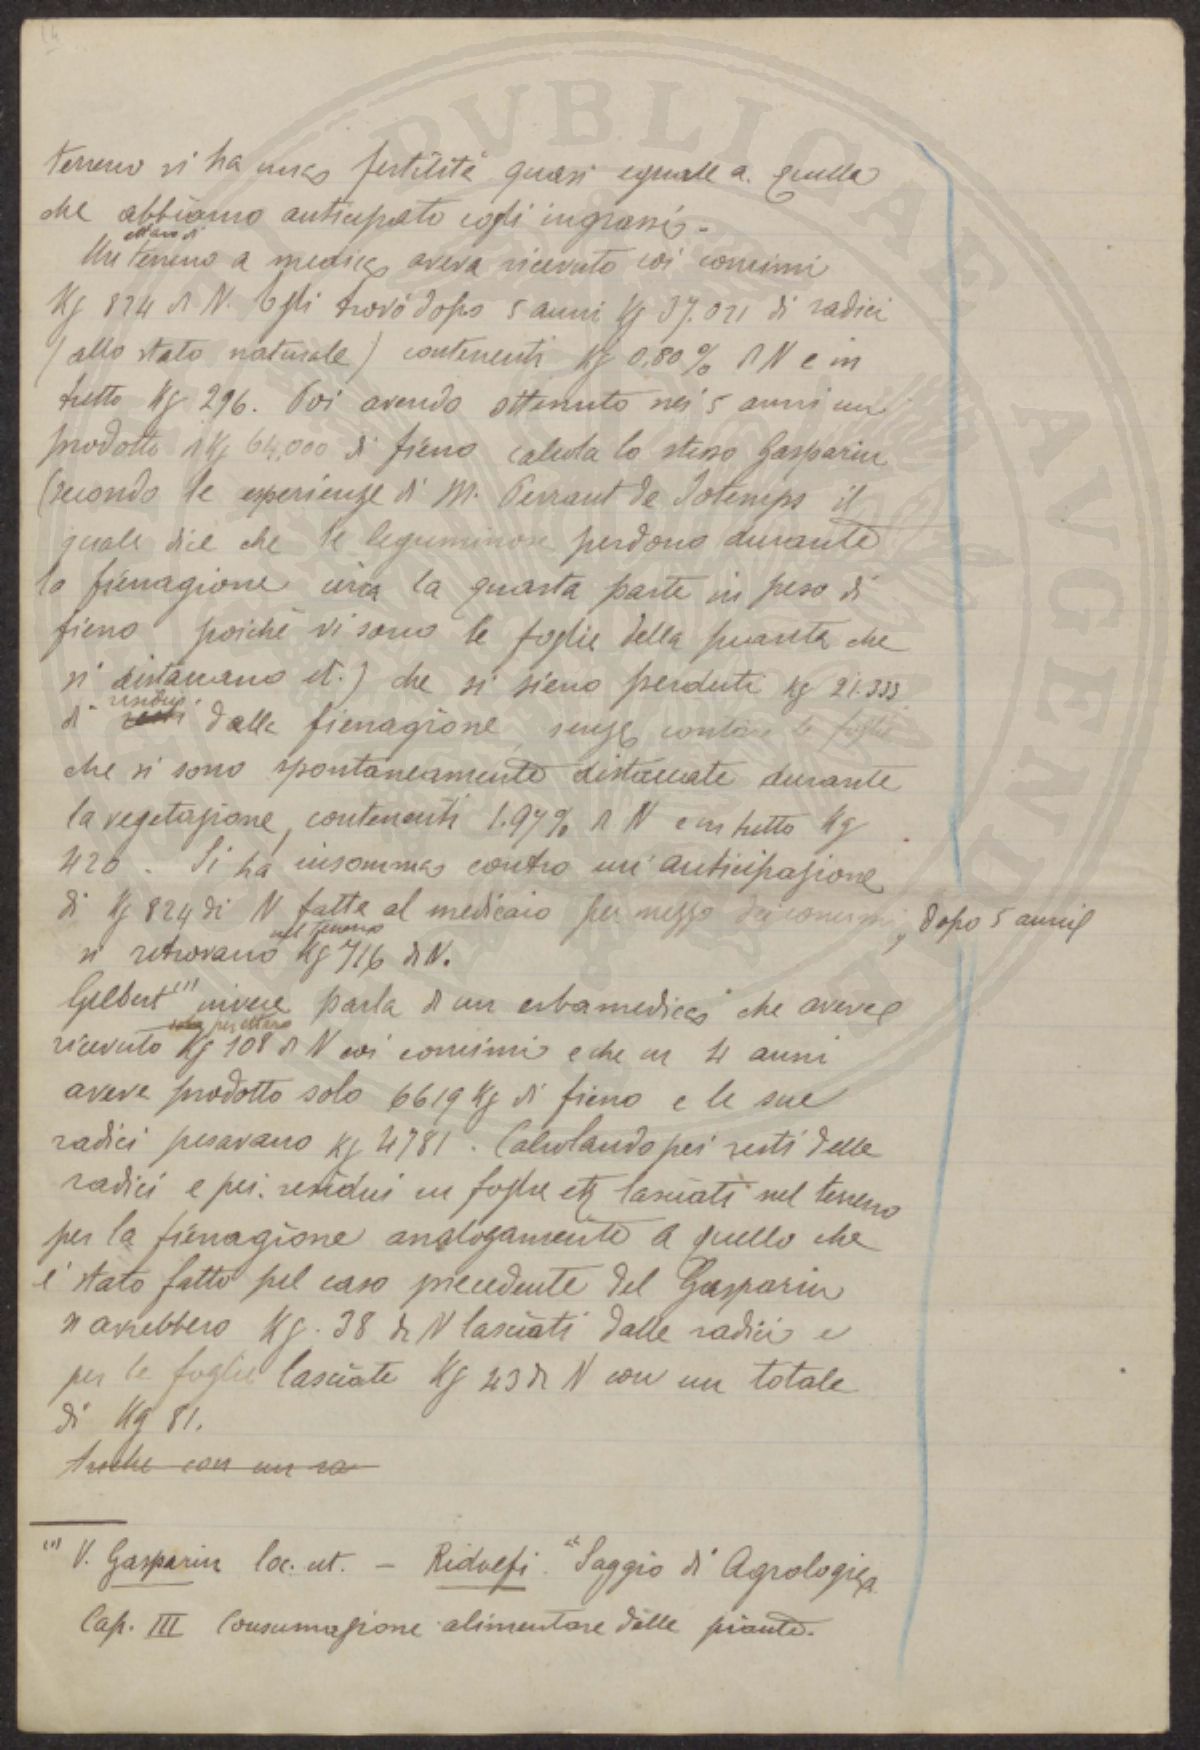 terreno si ha una fertilità quasi eguale a quella
che abbiamo anticipato cogli ingrassi.
ettaro di
Un terreno a medica aveva ricevuto coi concimi
Kg 824 di N. Egli trovò dopo 5 anni Kg 37.021 di radici
(allo stato naturale) contenenti Kg 0,80% di N e in
tutto Kg 296. Poi avendo ottenuto nei 5 anni un
prodotto di Kg 64,000 di fieno calcola lo stesso Gasparin
(secondo le esperienze di M. Perraut de Jotemps il
quale dice che le leguminose perdono durante
la fienagione circa la quarta parte in peso di
fieno poichè vi sono le foglie della pianta che
si distaccano et.) che si sieno perduti Kg 21.333
residui
di resti dalla fienagione, senza contare le foglie
che si sono spontaneamente distaccate durante
la vegetazione, contenenti 1.97% di N e in tutto Kg
420. Si ha insomma contro un'anticipazione
di Kg 824 di N fatta al medicaio per mezzo dei concimi, dopo 5 anni
nel terreno
si ritrovano Kg 716 di N.
Gilbert (1) invece parla di un erbamedica che aveva
per ettaro
ricevuto Kg 108 di N coi concimi e che in 4 anni
aveva prodotto solo 6619 Kg di fieno e le sue
radici pesavano Kg 4781. Calcolando pei resti delle
radici e pei residui in foglie etc lasciati nel terreno
per la fienagione analogamente a quello che
è stato fatto pel caso precedente del Gasparin
si avrebbero Kg. 38 di N lasciati dalle radici e
per le foglie lasciate Kg 43 di N con un totale
di Kg 81.
Anche con un ra
(1) V. Gasparin loc. cit. — Ridolfi "Saggio di Agrologia
Cap. III Consumazione alimentare delle piante.
PVBLICAE AVGENDAE